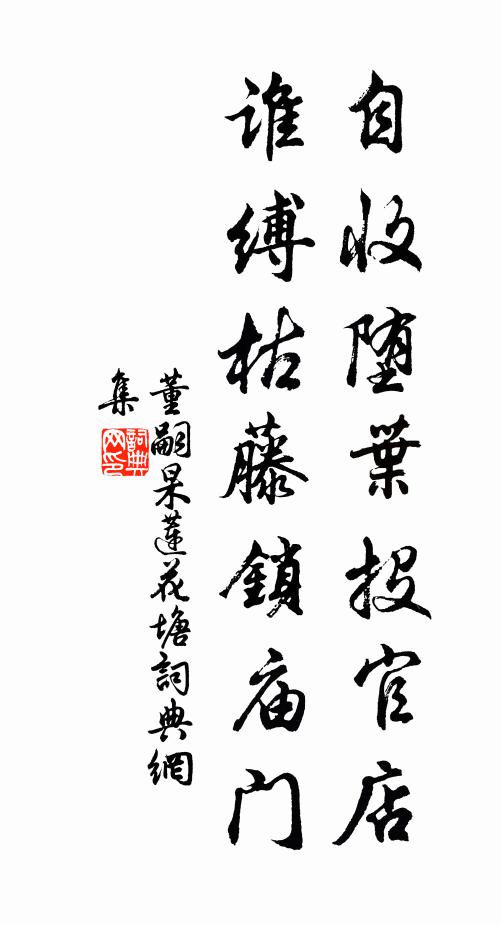 自收堕葉投官店
谁缚枯藤鎖庙门
董嗣杲蓮花塘詞典網
集
詞典
网印